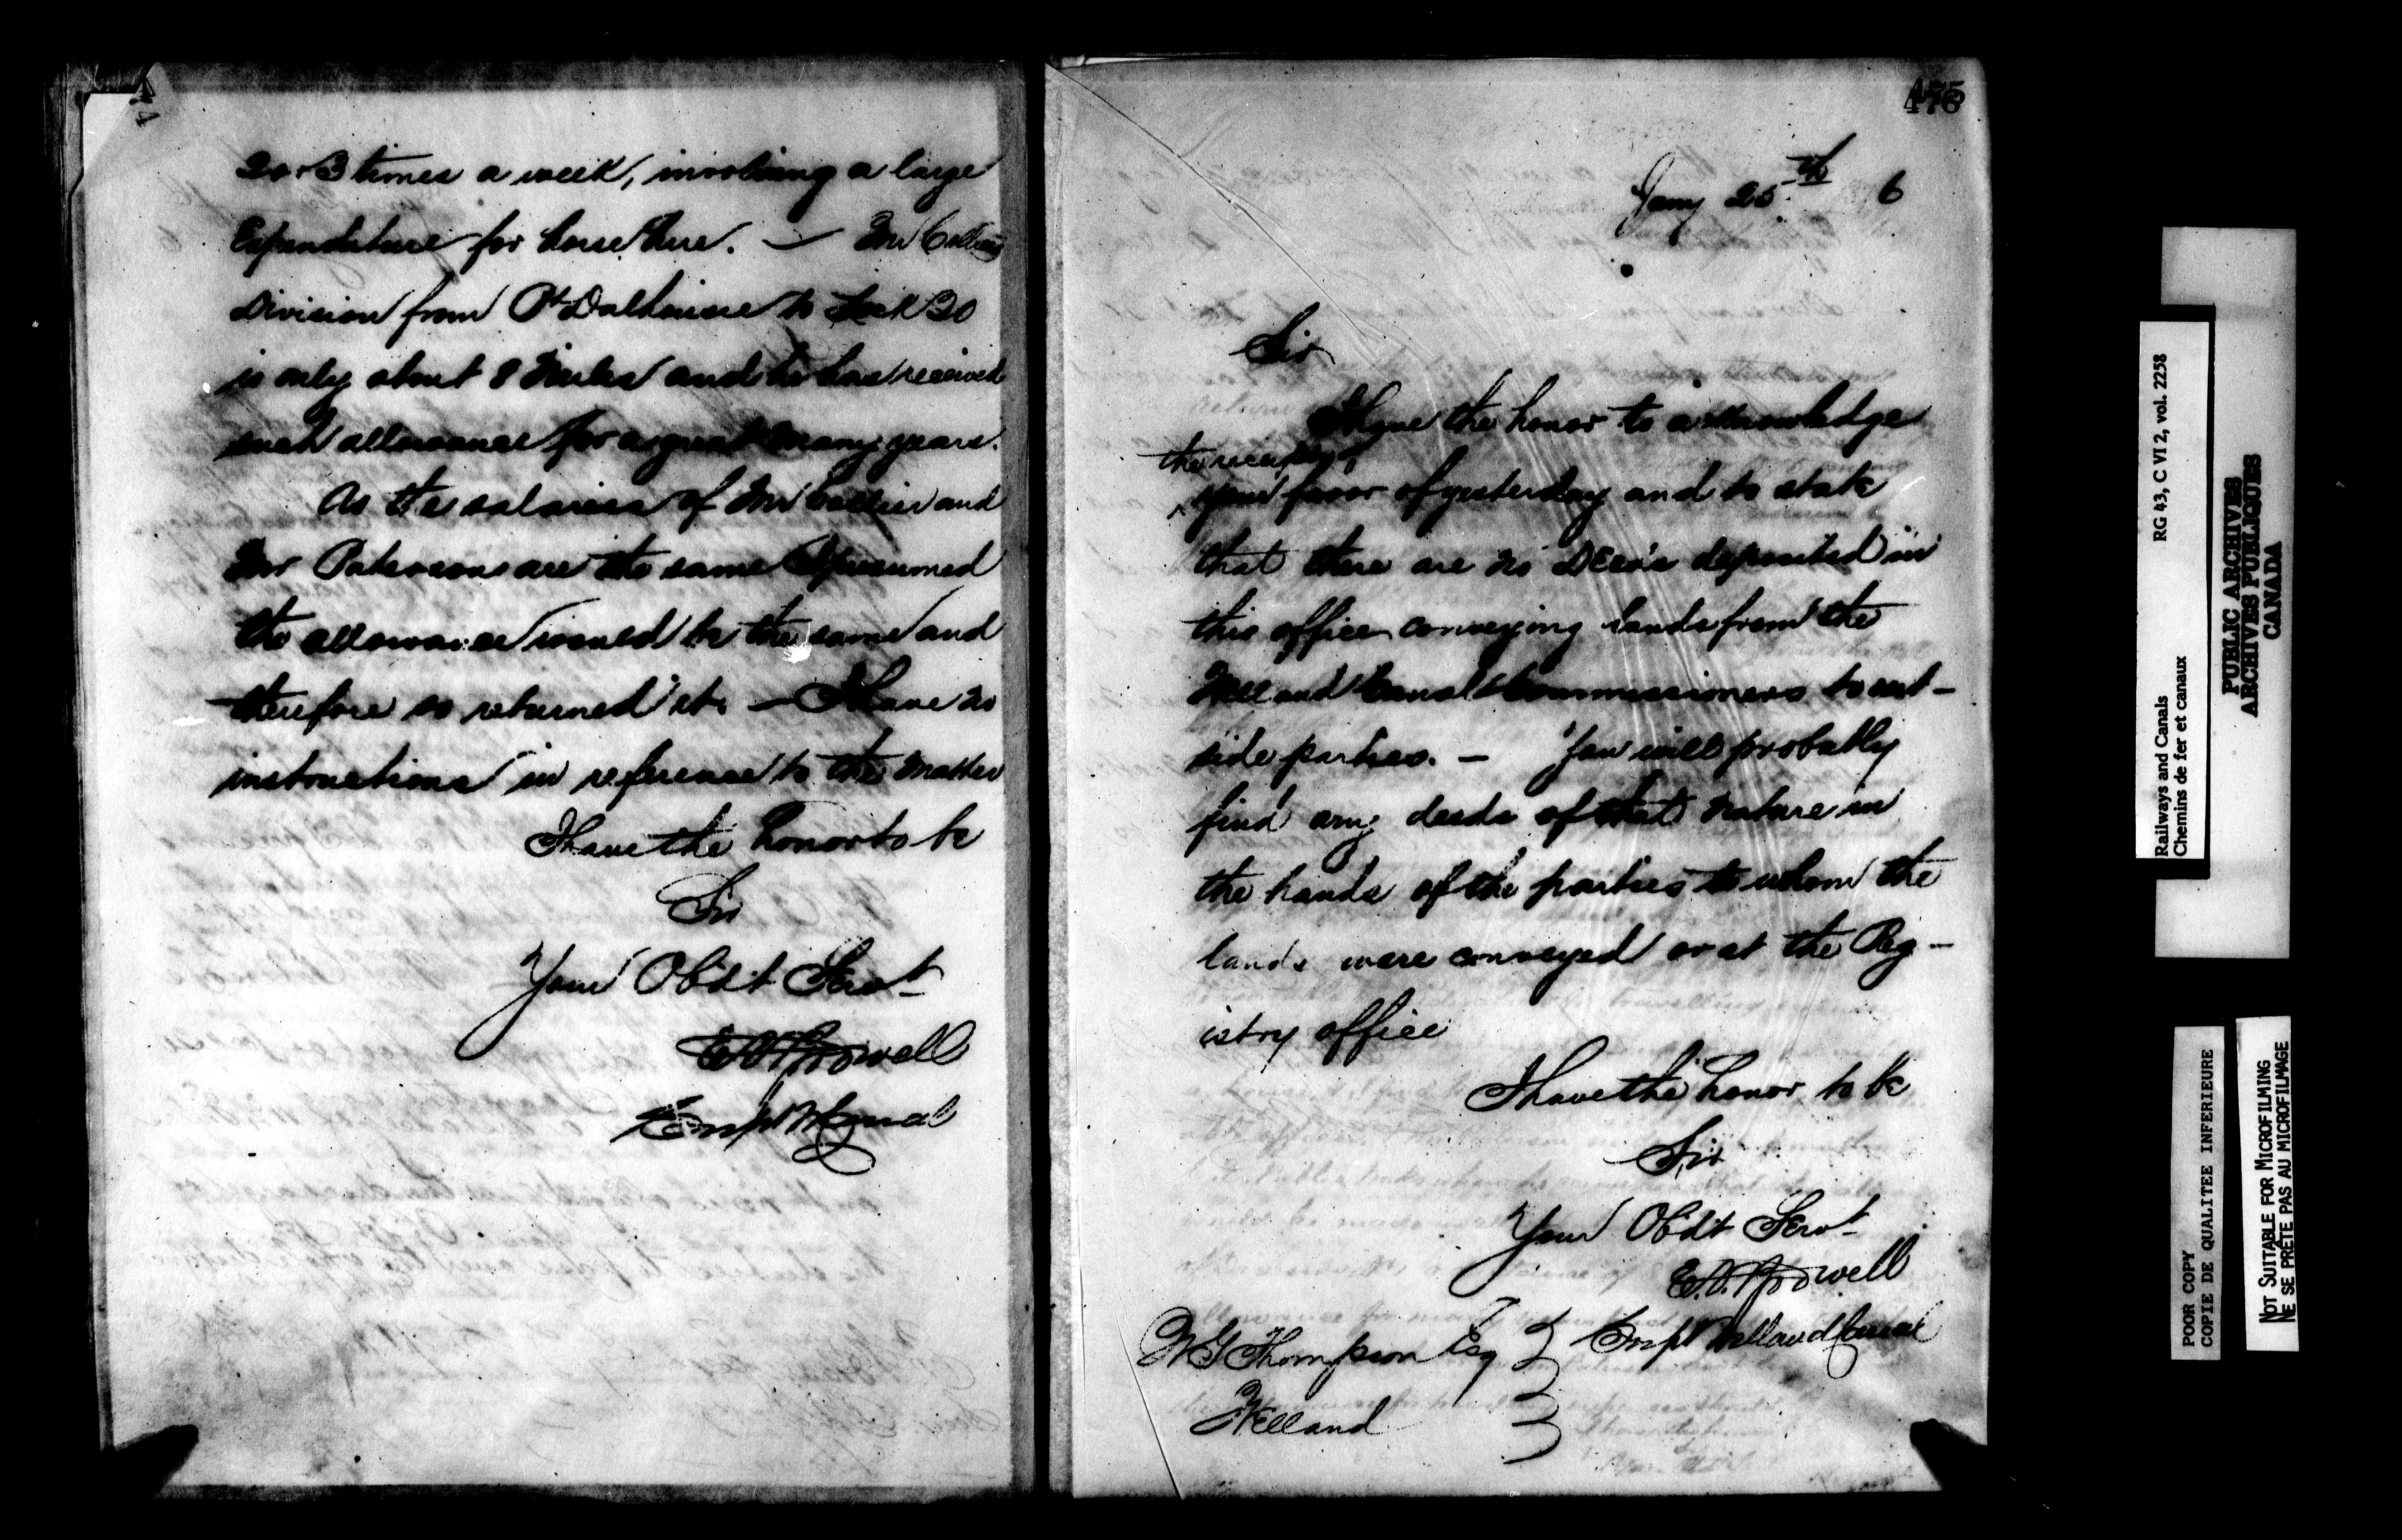 2 or 3 times a week, involving a large
Expenditure for horse hire. — Mr Colliers
Division from Pt Dalhousie to Lock 20
is only about 8 Miles and he has received
such allowance for a great many years.
As the salaries of Mr Collier and
Mr Paterson are the same I presumed
the allowance would be the same and
therefore so returned it. — I have no
instructions in reference to the matter
I have the honor to be
Sir
Your Obdt Servt
Supt W Canal
Jany 25th 6
Sir
I have the honor to acknowledge
the receipt of
your favor of yesterday and to state
that there are no Deeds deposited in
this office conveying lands from the
Welland Canal Commissioners to out-
side parties. — You will probably
find any deeds of that nature in
the hands of the parties to whom the
lands were conveyed or at the Reg-
istry office
I have the honor to be
Sir
Your Obdt Servt
Supt Welland Canal
W G Thompson Esq
Welland
Railways and Canals RG 43, C VI 2, vol. 2258
Chemins de fer et canaux
PUBLIC ARCHIVES
ARCHIVES PUBLIQUES
CANADA
POOR COPY
COPIE DE QUALITEE INFERIEURE
NOT SUITABLE FOR MICROFILMING
NE SE PRÊTE PAS AU MICROFILMAGE